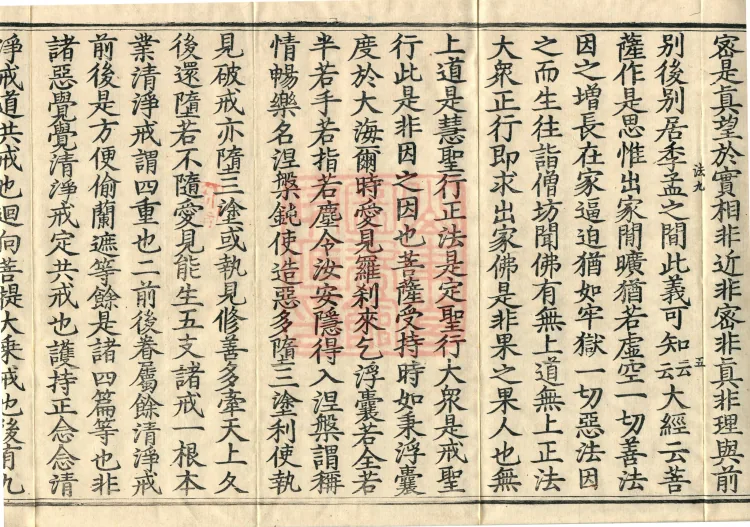 密是真望於實相非近非密非真非理與前
別後別居季孟之間此義可知云云大經云菩
薩作是思惟出家閒曠猶若虛空一切善法
因之增長在家逼迫猶如牢獄一切惡法因
之而生往詣僧坊聞佛有無上道無上正法
大衆正行即求出家佛是非果之果人也無
上道是慧聖行正法是定聖行大衆是戒聖
行此是非因之因也菩薩受持時如秉浮囊
度於大海爾時愛見羅刹來乞浮囊若全若
半若手若指若塵令汝安隱得入涅槃謂稱
情暢樂名涅槃鈍使造惡多墮三塗利使執
見破戒亦墮三塗或執見修善多牽天上久
後還墮若不隨愛見能生五支諸戒一根本
業清淨戒謂四重也二前後眷屬餘清淨戒
前後是方便偷蘭遮等餘是諸四篇等也非
諸惡覺覺清淨戒定共戒也護持正念念清
淨戒道共戒也迴向菩提大乘戒也後有九
法九
五